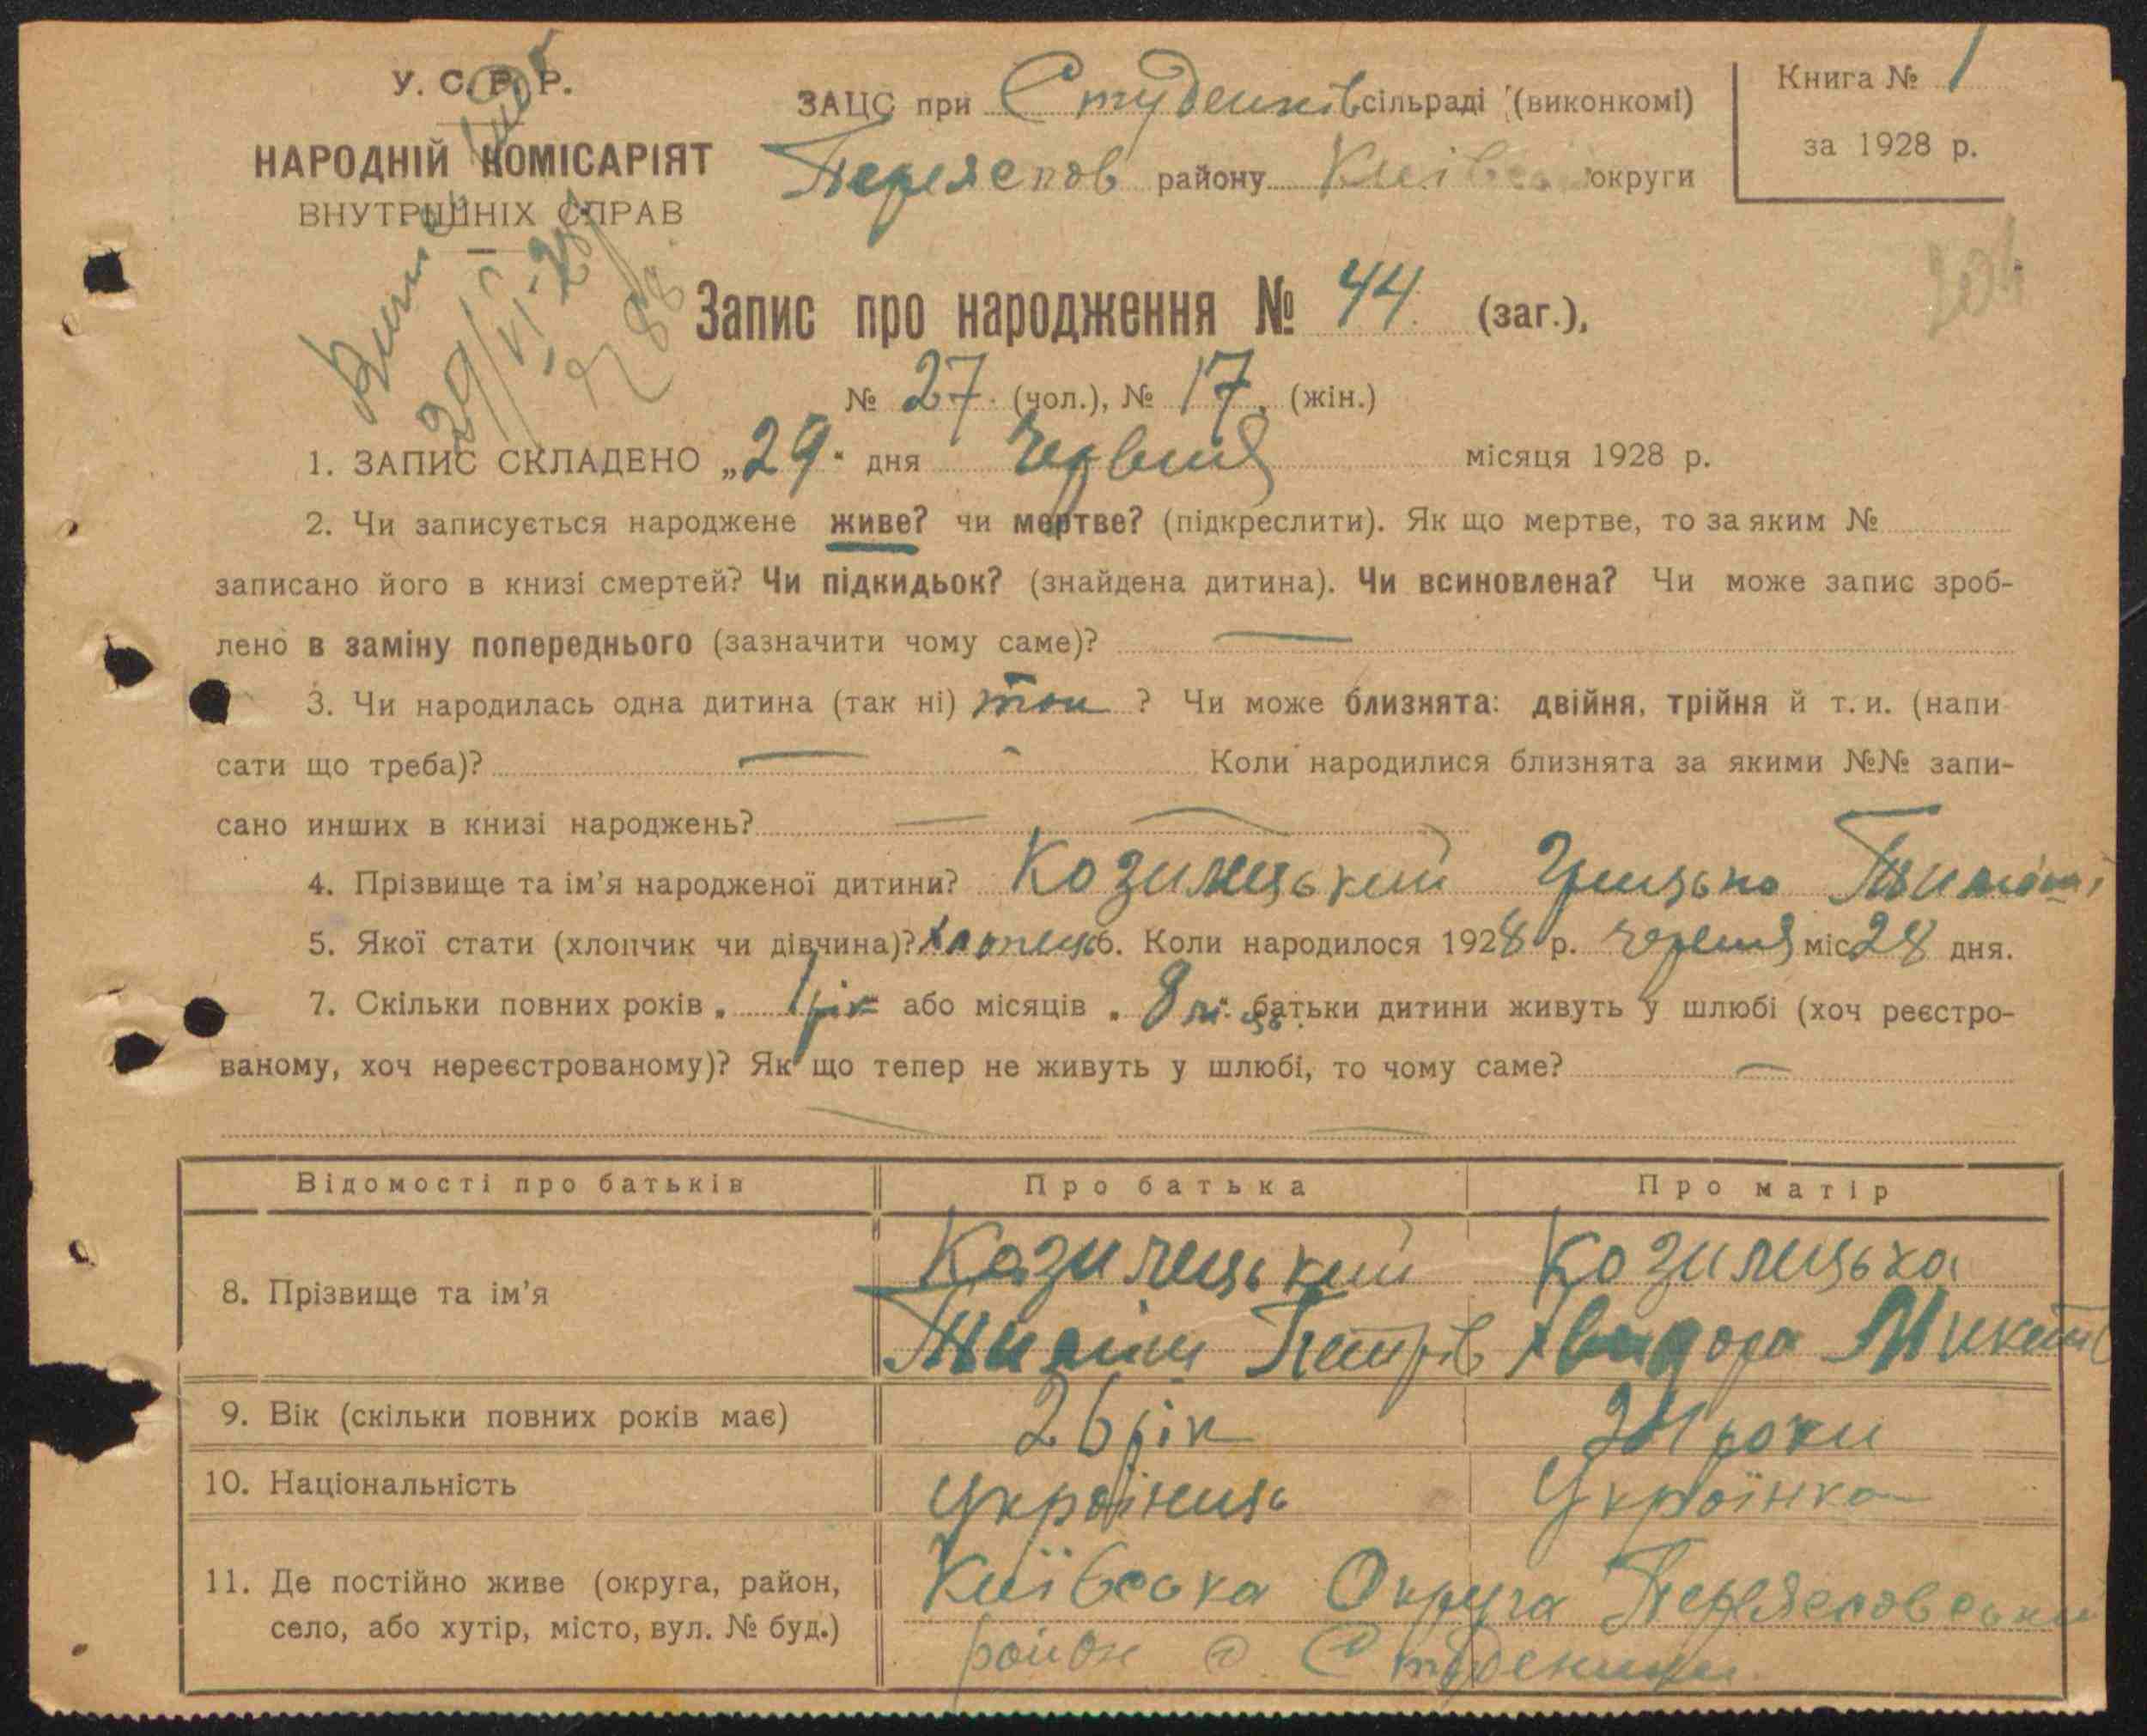 У. С. Р. Р.
НАРОДНІЙ КОМІСАРІЯТ
ВНУТРІШНІХ СПРАВ
ЗАЦС при Студенків сільраді (виконкомі)
Переяслов району Київської округи
Книга № 1
за 1928 р.
29/VI-28
Запис про народження № 44 (заг.),
№ 27 (чол.), № 17 (жін.)
1. ЗАПИС СКЛАДЕНО „29" дня Червня місяця 1928 р.
2. Чи записується народжене живе? чи мертве? (підкреслити). Як що мертве, то за яким №
записано його в книзі смертей? Чи підкидьок? (знайдена дитина). Чи всиновлена? Чи може запис зроб-
лено в заміну попереднього (зазначити чому саме)? —
3. Чи народилась одна дитина (так ні) так ? Чи може близнята: двійня, трійня й т. и. (напи
сати що треба)? — Коли народилися близнята за якими №№ запи-
сано инших в книзі народжень? —
4. Прізвище та ім'я народженої дитини? Козилецький Грицько
5. Якої стати (хлопчик чи дівчина)? хлопець 6. Коли народилося 1928 р. червня міс 28 дня.
7. Скільки повних років 1 рік або місяців 8 місяц. батьки дитини живуть у шлюбі (хоч реєстро-
ваному, хоч нереєстрованому)? Як що тепер не живуть у шлюбі, то чому саме? —
Відомості про батьків Про батька Про матір
8. Прізвище та ім'я
Козилецький Козилецька
Петрів Микит
9. Вік (скільки повних років має) 26 рік 24 роки
10. Національність Українець Українка
11. Де постійно живе (округа, район,
село, або хутір, місто, вул. № буд.)
Київська Округа Переясловський
район с Студеники